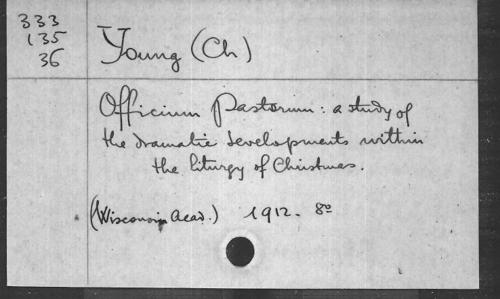 333
135
36
Young (Ch)
Officium Pastorum: a study of
the dramatic developments within
the liturgy of Christmas.
(Wisconsin Acad.) 1912. 8º